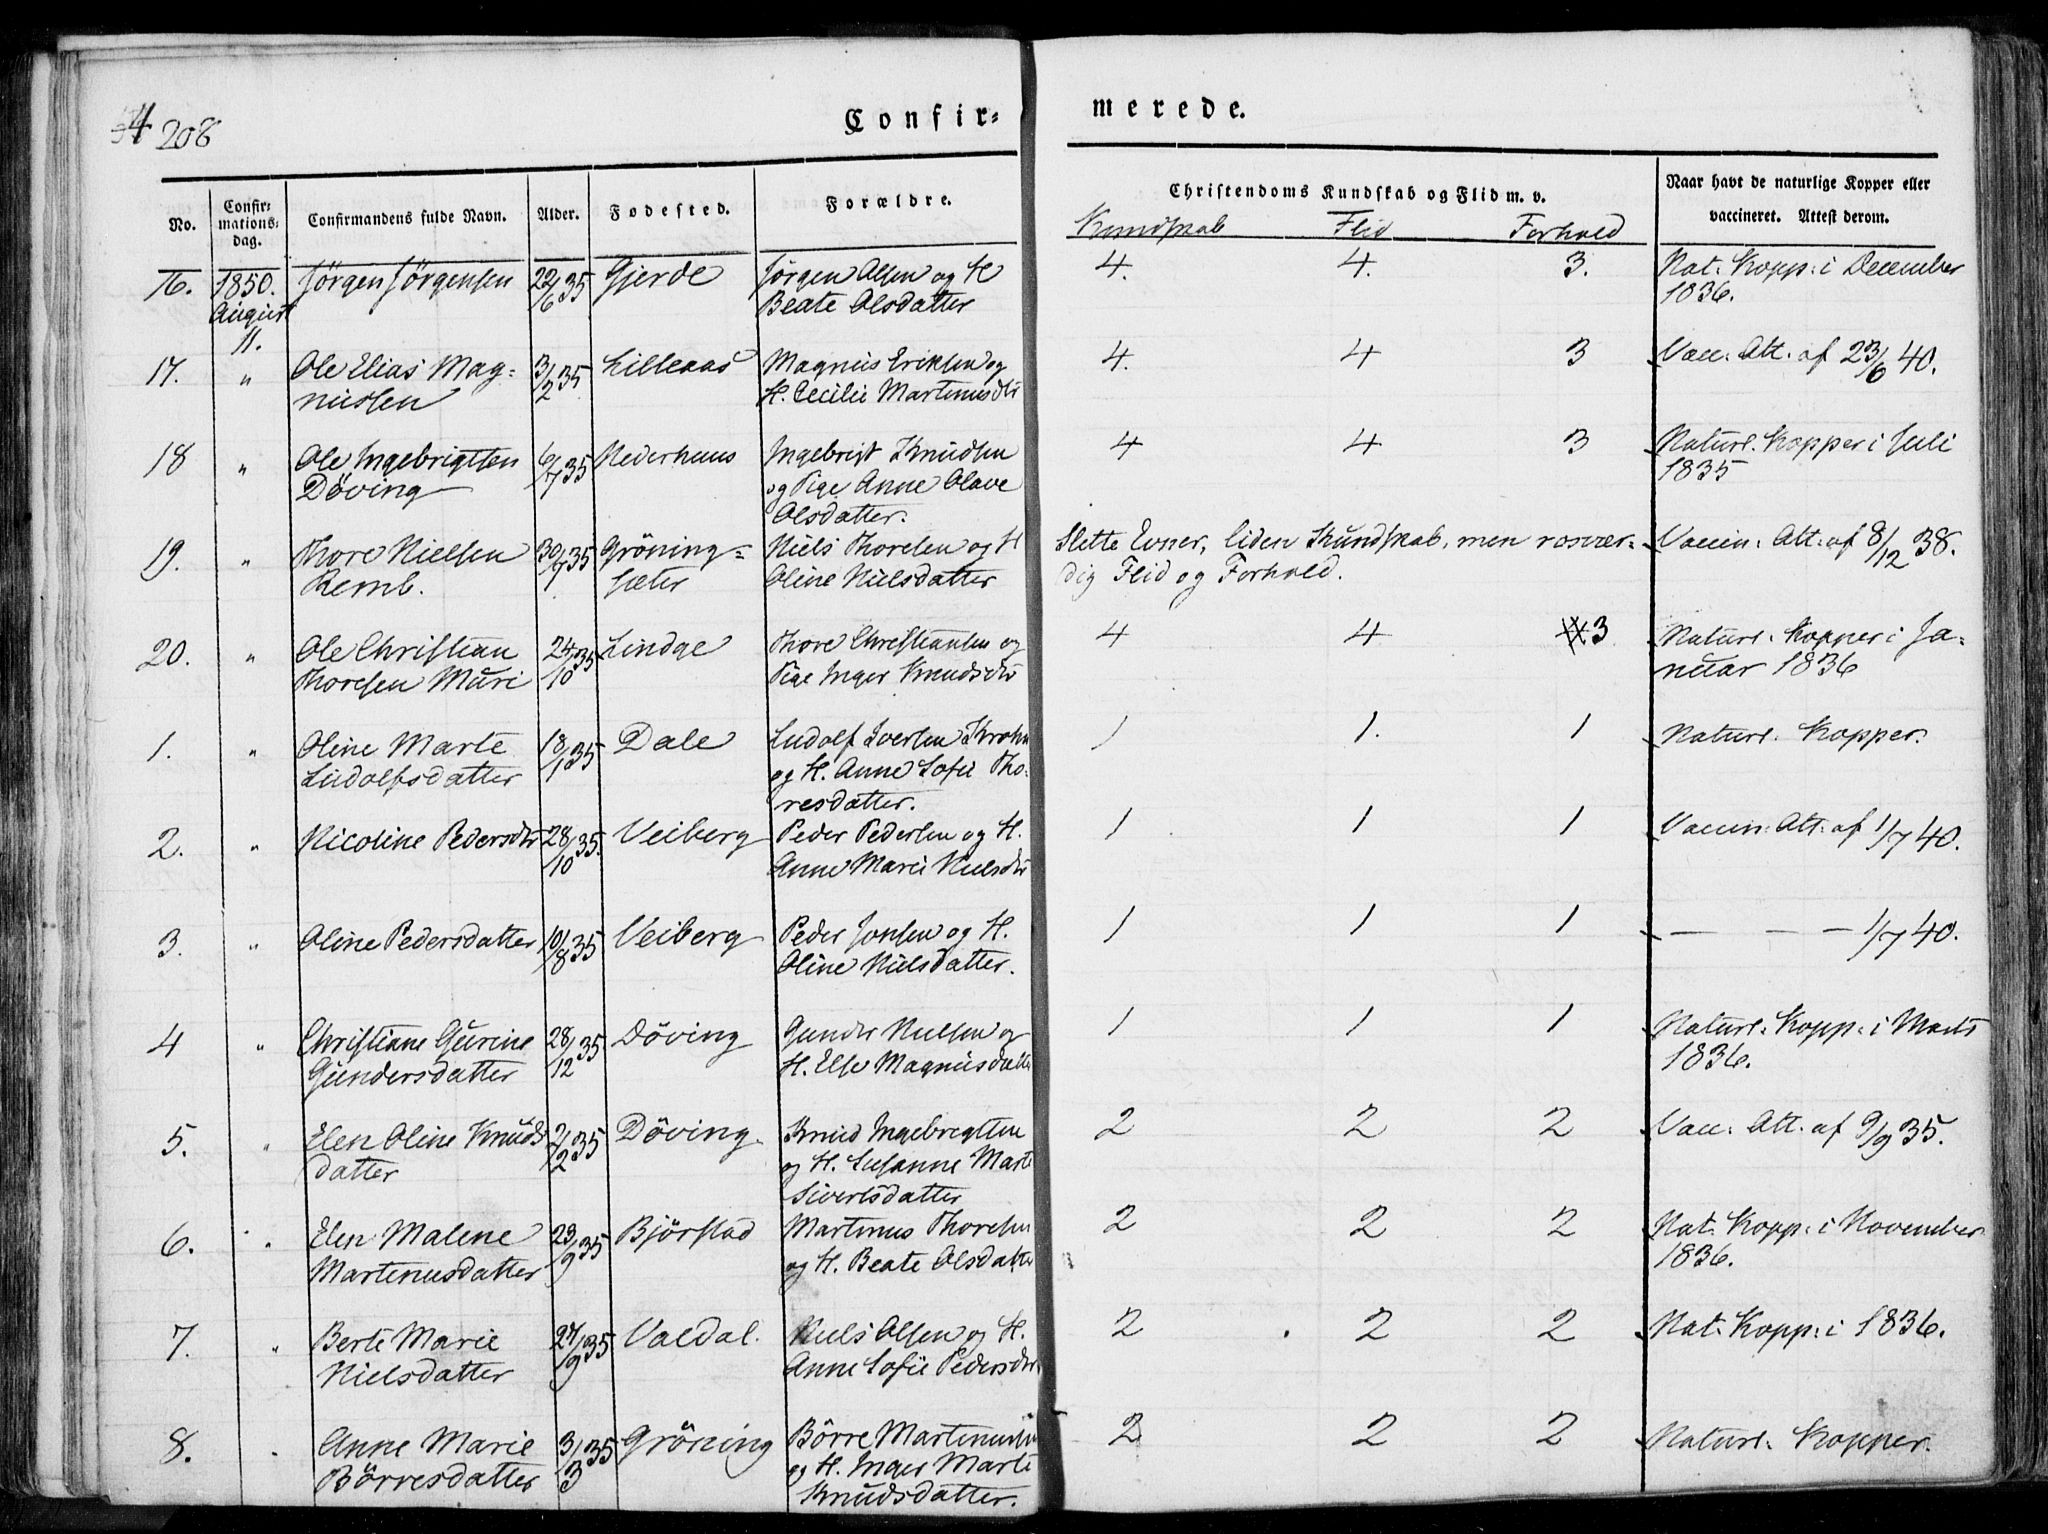 208
Confir=
merede.
No.
Confir=
mations=
dag.
Confirmandens fulde Navn.
Alder.
Fødested.
Forældre.
Christendoms Kundskab og Flid m. v.
Kundskab Flid Forhold
Naar havt de naturlige Kopper eller
vaccineret. Attest derom.
16. 1850. Jørgen Jørgensen 22/6 35 Gjerde Jørgen Olsen og H 4. 4. 3. Nat: Kopp: i December
August Beate Olsdatter 1836.
11.
17. " Ole Elias Mag= 3/2 35 Lilleaas Magnus Eriksen og 4. 4 3 Vacc: Att: af 23/6 40.
nussen H. Cecilie Martinusdtr
18 " Ole Ingebrigtsen 6/7 35 Nederhuus Ingebrigt Knudsen 4 4 3 Naturl: Kopper i Juli
Döving og Pige Anne Olave 1835
Olsdatter.
19. " Thore Nielsen 30/7 35 Gröning= Niels Thoresen og H Slette Evner, liden Kundskab, men rosvær= Vaccin: Att: af 8/12 38.
Remb. sæter Oline Nielsdatter dig Flid og Forhold.
20. " Ole Christian 24/10 35 Lindge Thore Christiansen og 4 4 3 Naturl: Kopper i Ja=
Thoresen Muri Pige Inger Knudsdtr nuar 1836
1. " Oline Marte 18/1 35 Dale Ludolf Iversen Krohn 1 1. 1 Naturl: Kopper.
Ludolfsdatter og H. Anne Sofie Tho=
resdatter.
2. " Nicoline Pedersdtr 28/10 35. Veiberg Peder Pedersen og H. 1 1 1 Vaccin: Att: af 1/7 40.
Anne Marie Nielsdtr
3. " Oline Pedersdatter 10/8 35 Veiberg Peder Jonsen og H. 1 1 1 — — — 1/7 40.
Oline Nielsdatter.
4 " Christiane Gurine 28/12 35 Döving Gunder Nielsen og 1 1 1 Naturl: Kopp: i Marts
Gundersdatter H. Else Magnusdatter 1836.
5. " Elen Oline Knuds 2/2 35 Döving. Knud Ingebrigtsen 2 2 2 Vacc: Att: af 9/9 35.
datter og H. Susanne Marte
Sivertsdatter
6. " Elen Malene 23/9 35 Bjørstad Martinus Thoresen 2 2 2 Nat: Kopp: i November
Martinusdatter og H. Beate Olsdatter 1836.
7. " Berte Marie 27/9 35 Valdal. Niels Olsen og H. 2 2 2 Nat: Kopp: i 1836.
Nielsdatter Anne Sofie Pedersdtr
8. " Anne Marie 3/3 35 Gröning Börre Martinussen 2 2 2 Naturl: Kopper.
Börresdatter og H. Inger Marte
Knudsdatter.